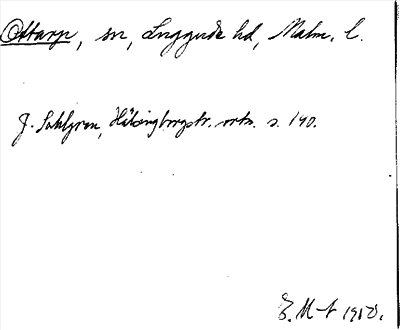 Ottarp, sn, Luggude hd, Malm. l.
J. Sahlgren, Hälsingborgstr. ortn. s. 140.
E. M-t 1950.